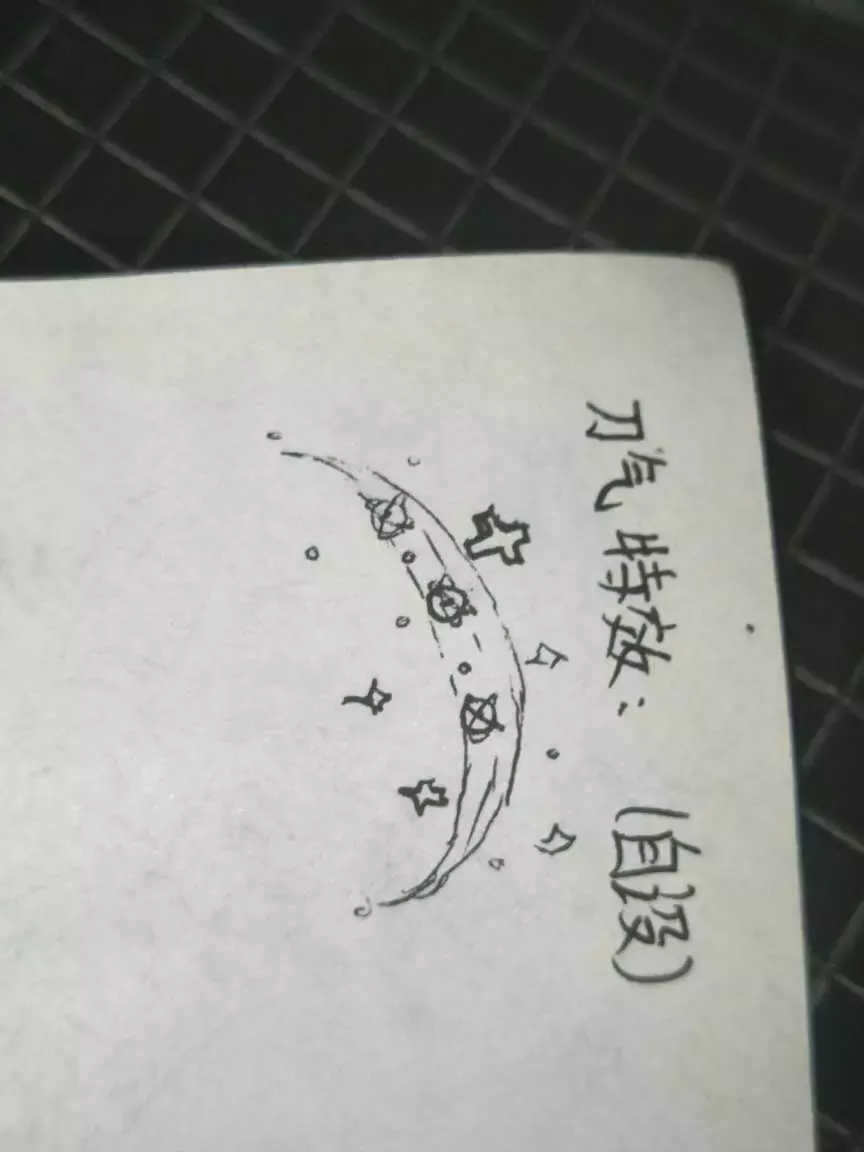 刀气特效：(自设)